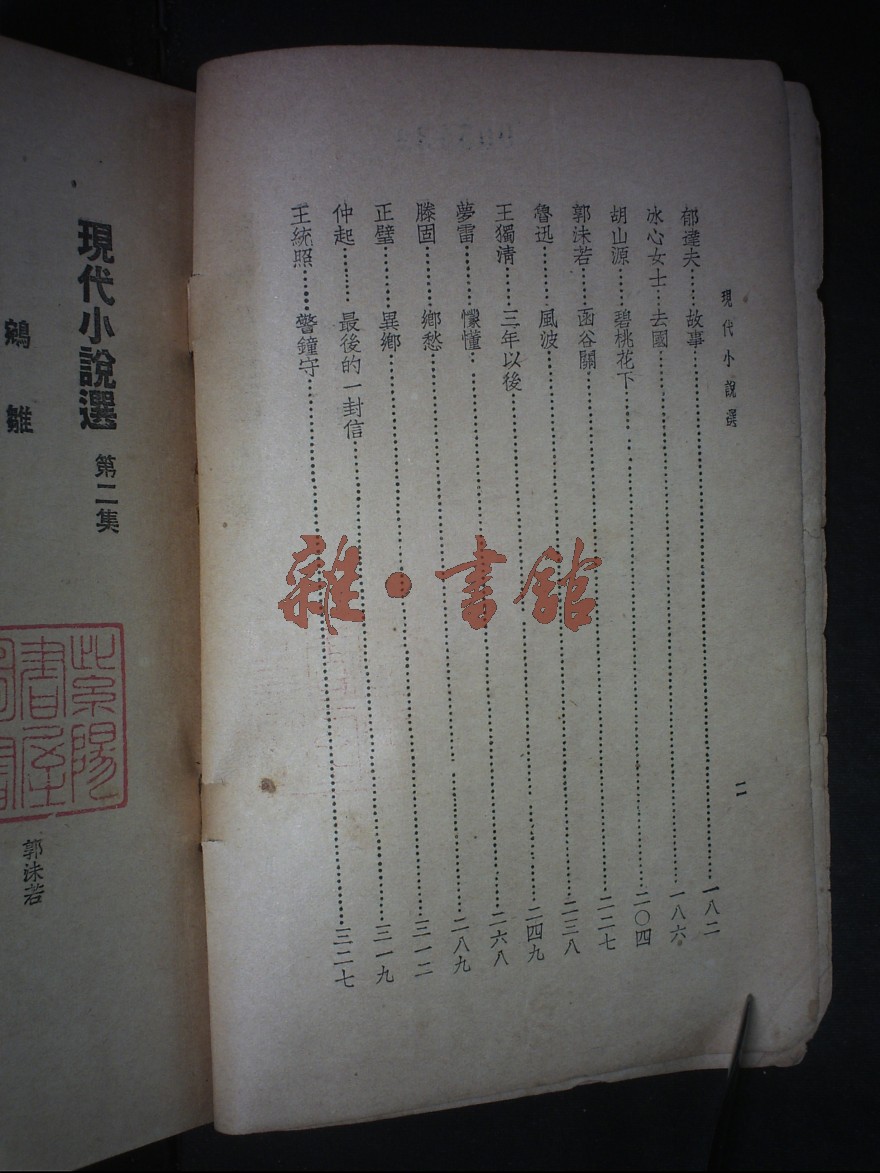 現代小說選 二
郁達夫……故事……一八二
冰心女士……去國……一八六
胡山源……碧桃花下……二〇四
郭沫若……函谷關……二二七
魯迅……風波……二三八
王獨清……三年以後……二四九
夢雷……懞懂……二六八
滕固……鄉愁……二八九
正璧……異鄉……三一二
仲起……最後的一封信……三一九
王統照……警鐘守……三二七
雜·書館
現代小說選 第二集
鵷雛
郭沫若
紫陽
書屋